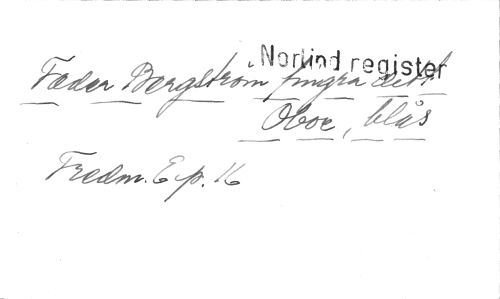 Norlind register
Fader Bergström fingra ditt
Oboe, blås
Fredm. Ep. 16